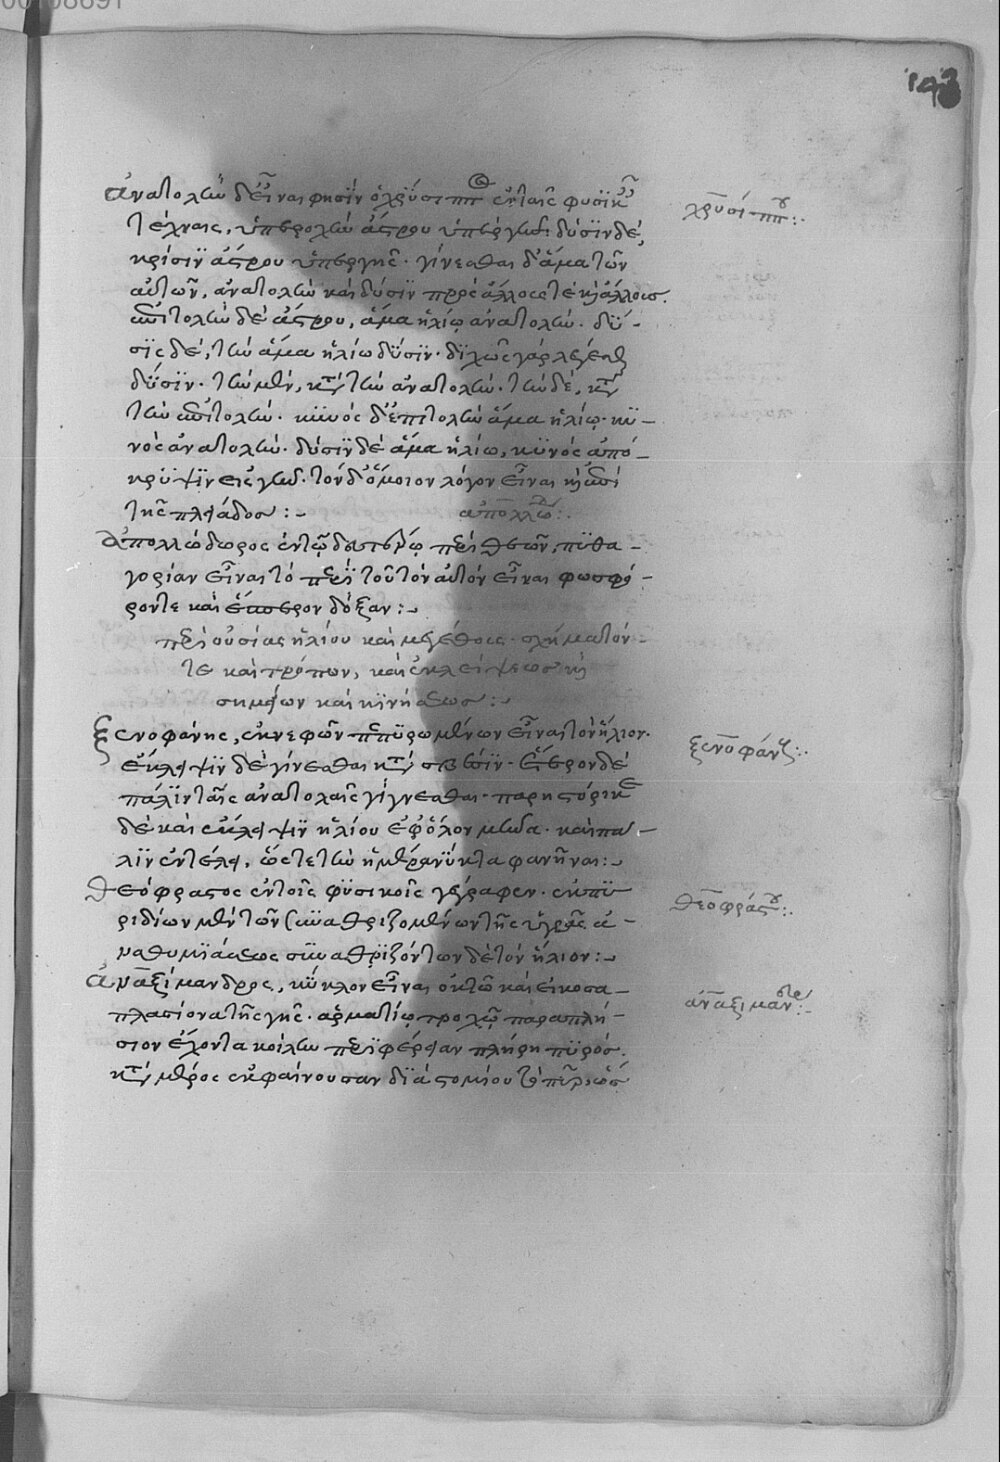 00108691
ἀνατολὴν δ' εἶναι φησὶν ὁ χρύσιππος ἐν ταῖς φυσικαῖς
τέχναις, ὑπερολὴν ἄστρου ὑπὲρ γῆν· δύσιν δέ,
κρίσιν ἄστρου ὑπὲρ γῆς· γίνεσθαι δ' ἅμα τῶν
αὐτῶν, ἀνατολὴν καὶ δύσιν πρὸς ἄλλους τε καὶ ἄλλους.
ἐπιτολὴν δὲ ἄστρου, ἅμα ἡλίῳ ἀνατολὴν· δύ-
σις δέ, τὴν ἅμα ἡλίω δύσιν· διχῶς γὰρ λέγεσθαι
δύσιν· τὴν μὲν, κατὰ τὴν ἀνατολὴν· τὴν δὲ, κατὰ
τὴν ἐπιτολὴν· κυνὸς δ' ἐπιτολὴν ἅμα ἡλίῳ· κυ-
νὸς ἀνατολὴν· δύσιν δὲ ἅμα ἡλίω, κυνὸς ἀπό-
κρυψιν εἰς γῆν· τὸν δ' ὅμοιον λόγον εἶναι καὶ ἐπὶ
τῆς πλειάδος:-
ἀπολλοδώ:.
Ἀπολλόδωρος ἐν τῷ δευτέρῳ περὶ θεῶν, πυθα-
γορίαν εἶναι τὸ περὶ τοῦ τὸν αὐτὸν εἶναι φωσφό-
ροντε καὶ ἕσπερον δόξαν:-
περὶ οὐσίας ἡλίου καὶ μεγέθους· σχήματόν-
τε καὶ τρόπων, καὶ ἐκλείψεως καὶ
σημείων καὶ κινήσεως:-
ξενοφάνης, ἐκ νεφῶν πεπυρωμένων εἶναι τὸν ἥλιον.
ἔκλειψιν δὲ γίνεσθαι κατὰ σβέσιν· ἕτερον δὲ
πάλιν ταῖς ἀνατολαῖς γίγνεσθαι· παρηστόρικε
δὲ καὶ ἔκλειψιν ἡλίου ἐφ' ὅλον μῆνα· καὶ πά-
λιν ἐντελῆ, ὥστε τὴν ἡμέραν νύκτα φανῆναι:-
θεόφραστος ἐν τοῖς φυσικοῖς γέγραφεν· ἐκ πυ
ριδίων μὲν τῶν συναθριζομένων τῆς ὑγρᾶς ἀ-
ναθυμιάσεως συναθριζόντων δὲ τὸν ἥλιον:-
ἀναξίμανδρος, κύκλον εἶναι ὀκτὼ καὶ εἰκοσα-
πλασίονα τῆς γῆς· ἁρματίῳ τροχῷ παραπλή-
σιον ἔχοντα κοίλην περιφέρειαν πλήρη πυρός.
κατὰ μέρος ἐκφαίνουσαν διὰ στομίου τὸ πῦρ, ὡς
χρυσίππου:.
ξενοφάνης:.
θεοφράστου:.
ἀναξιμάνδρου:-